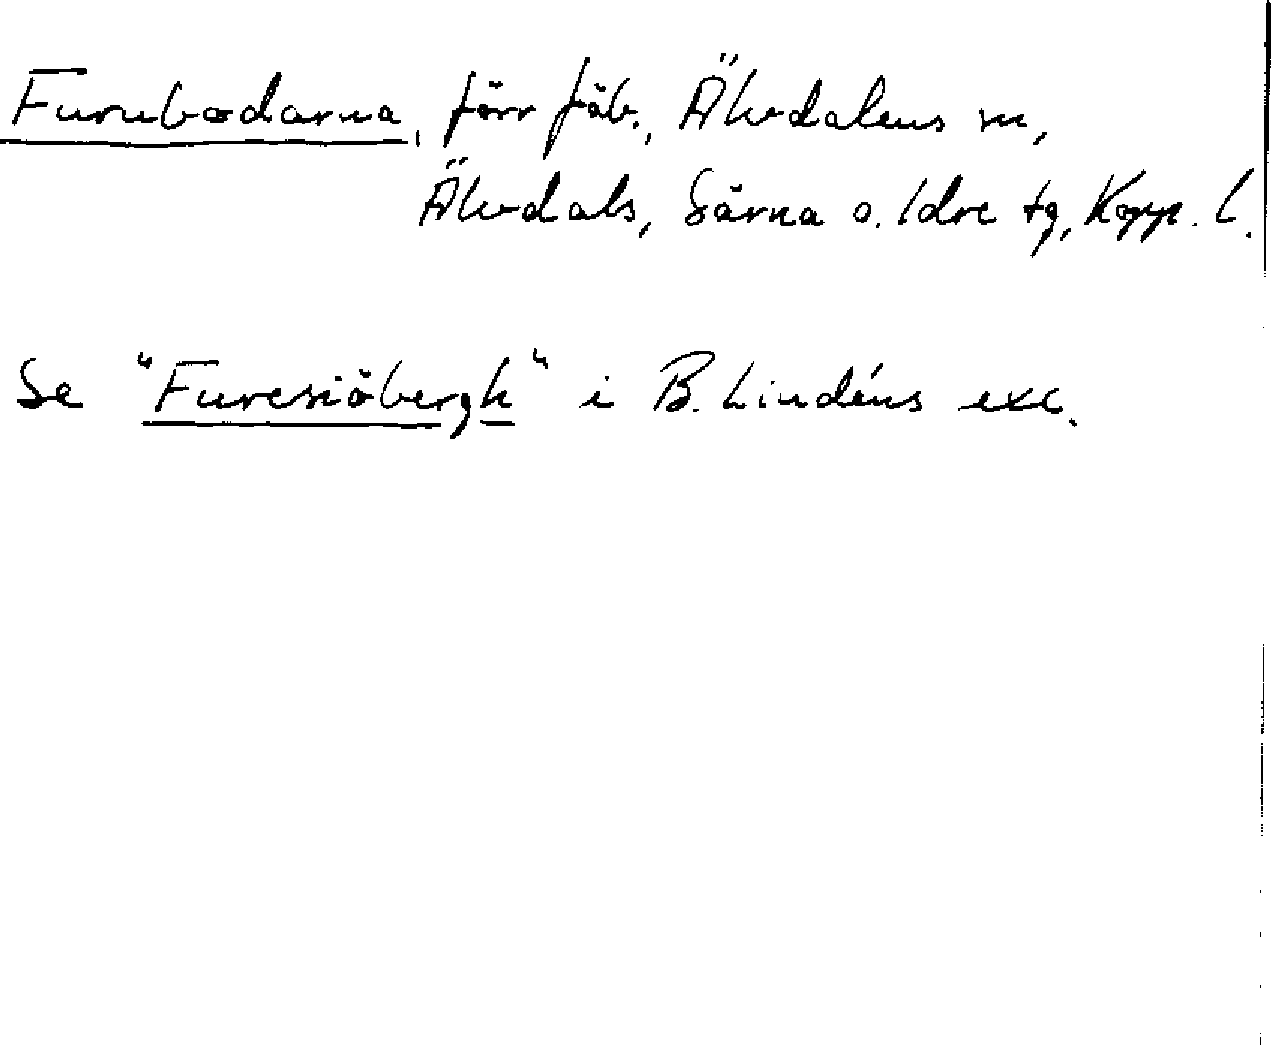 Furubodarna, förr fäb., Älvdalens sn,
Älvdals, Särna o. Idre tg, Kopp. l.
Se "Furesiöbergh" i B. Lindéns exc.